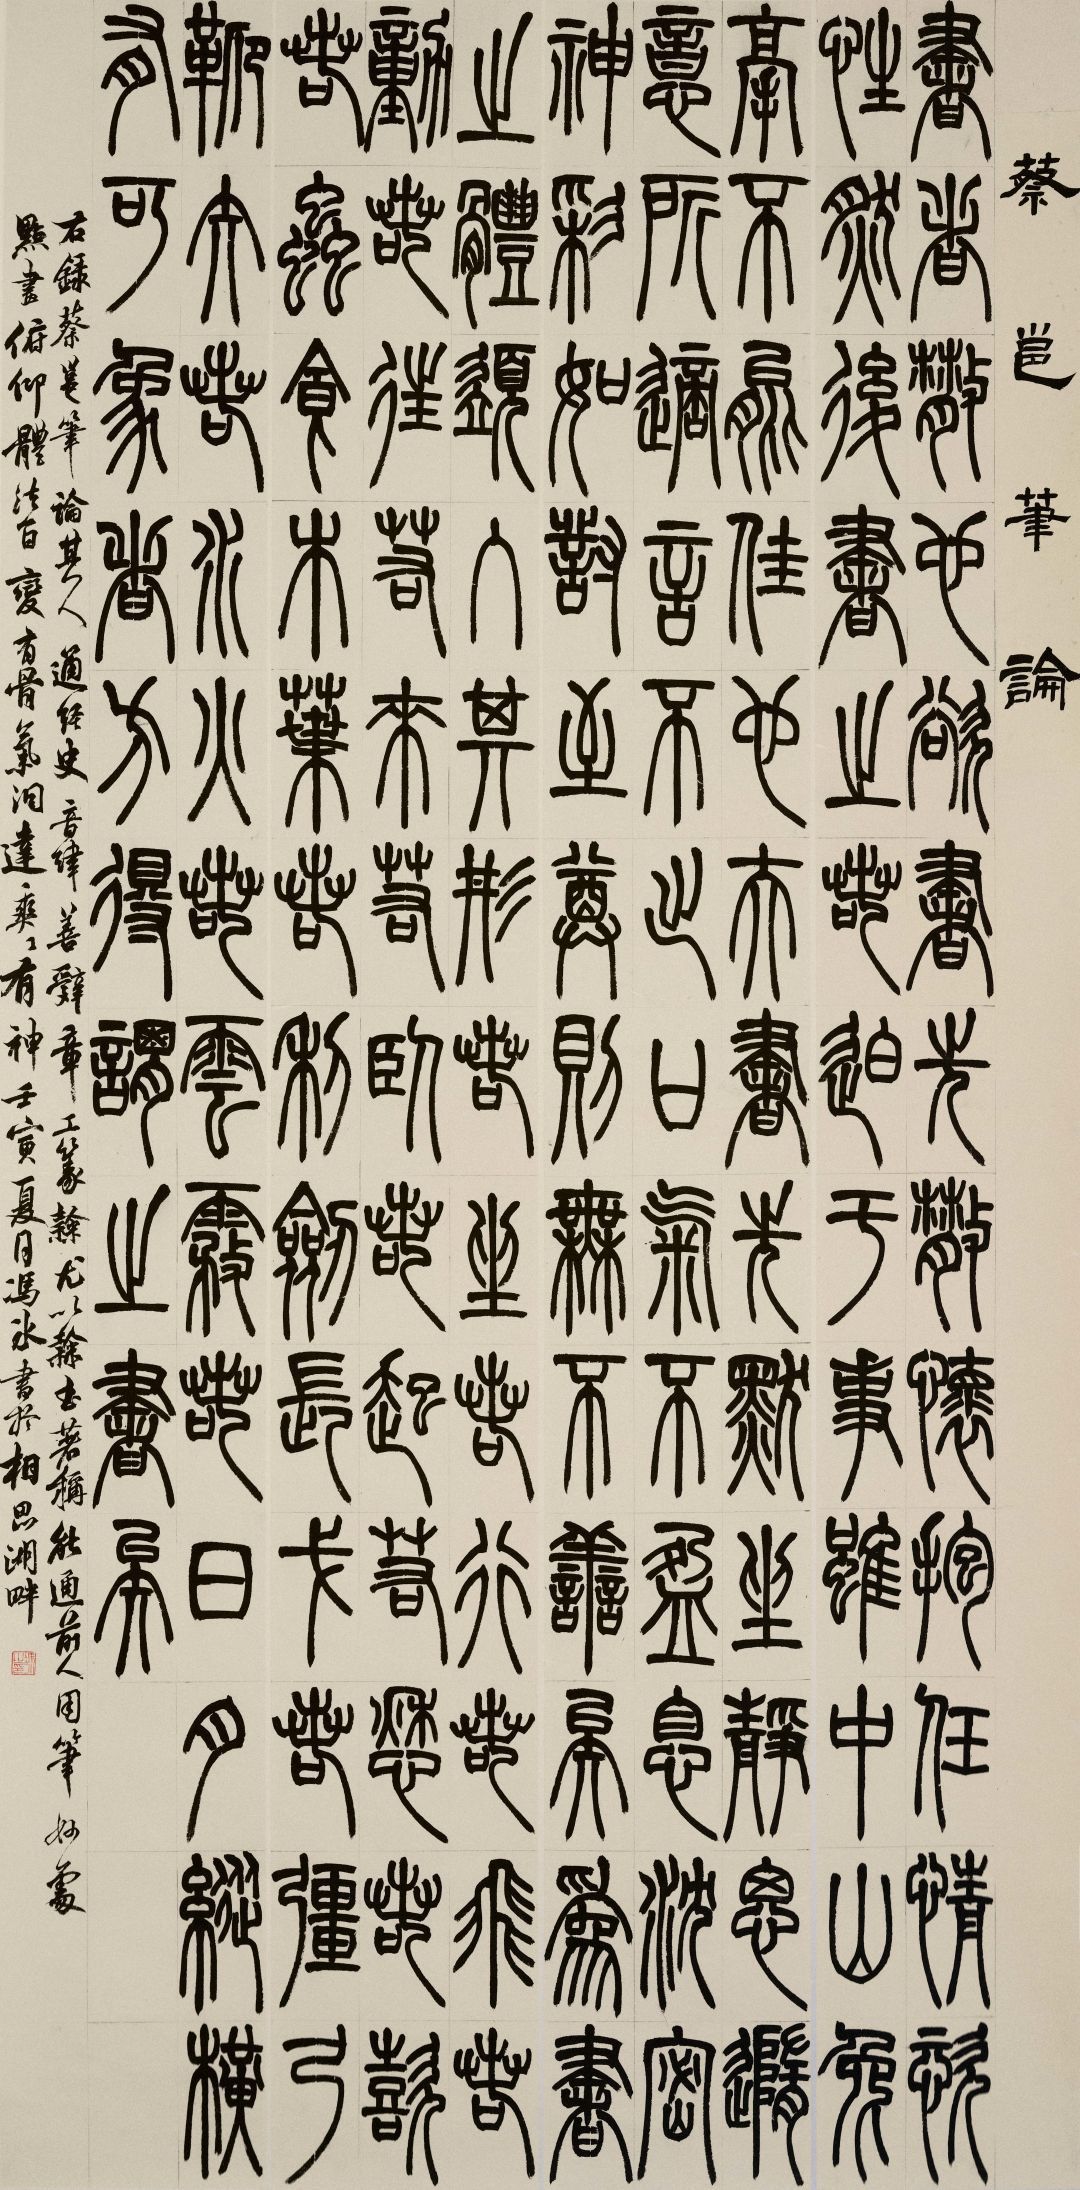 蔡邕筆論
書者散也欲書先散懷抱任情恣
性然後書之若迫于事雖中山兔
豪不能佳也夫書先默坐靜思隨
意所適言不出口氣不盈息沈密
神彩如對至尊則無不善矣為書
之體須入其形若坐若行若飛若
動若往若來若臥若起若愁若喜
若蟲食木葉若利劍長戈若彊弓
硬矢若水火若雲霧若日月縱橫
有可象者方得謂之書矣
右錄蔡邕筆論其人通經史音律善辭章工篆隸尤以隸書著稱能通前人用筆妙處
點畫俯仰體法百變有骨氣洞達爽〻有神壬寅夏月馮冰書於相思湖畔